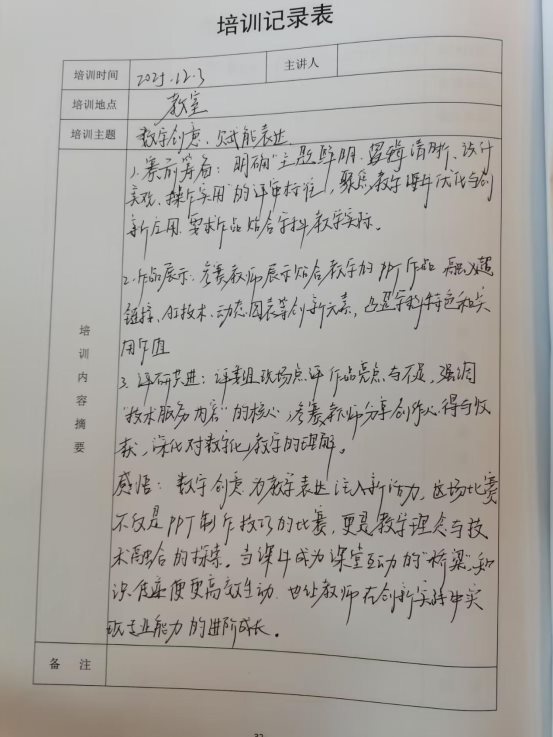 培训记录表
培训时间 2025.12.3 主讲人
培训地点 教室
培训主题 数字创意、赋能表达
1.赛前筹备：明确"主题鲜明、逻辑清晰、设计
美观、操作实用"的评审标准，聚焦教学课件优化与创
新应用，要求作品贴合学科教学实际。
2.作品展示：参赛教师展示贴合教学的PPT作品，融入超
链接、AI技术、动态图表等创新元素，凸显学科特色和实
用价值
3.评研共进：评委组现场点评作品亮点与不足，强调
"技术服务内容"的核心，参赛教师分享创作心得与收
获，深化对数字化教学的理解。
感悟：数字创意为教学表达注入新活力，这场比赛
不仅是PPT制作技巧的比赛，更是教学理念与技
术融合的探索。当课件成为课堂互动的"桥梁"，知
识传递便更高效生动，也让教师在创新实践中实
现专业能力的进阶成长。
培训内容摘要
备 注
32